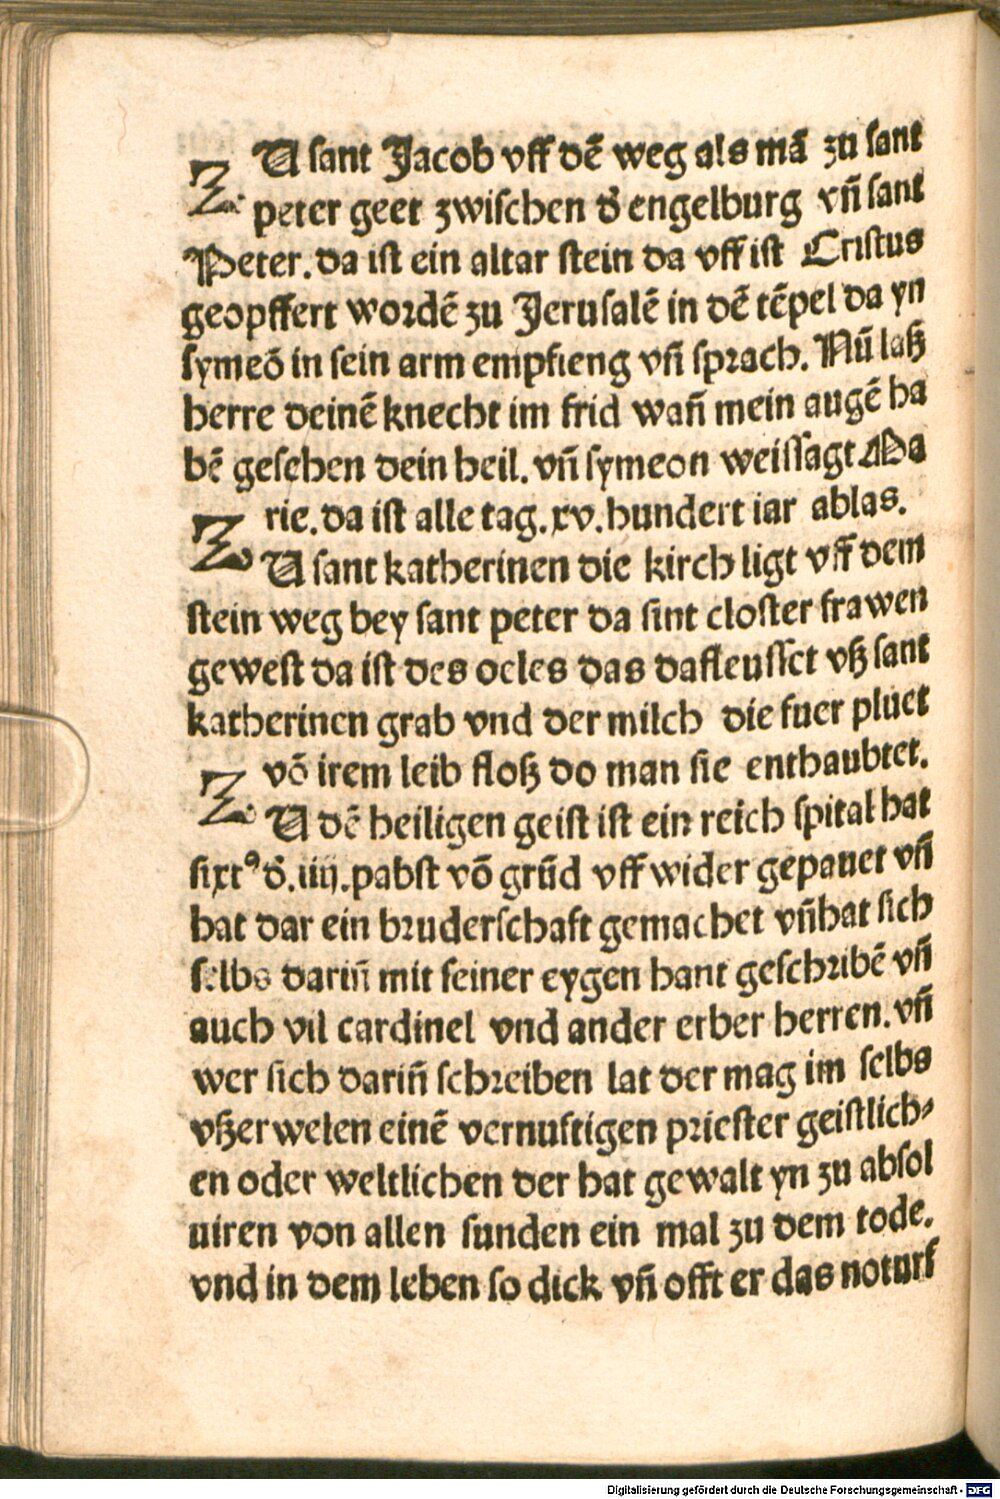 ZU sant Jacob vff dē weg als mā zu sant
peter geet zwischen dʹ engelburg vn̄ sant
Peter. da ist ein altar stein da vff ist Cristus
geopffert wordē zu Jerusalē in dē tēpel da yn
symeō in sein arm empfieng vn̄ sprach. Nū laß
herre deinē knecht im frid wan̄ mein augē ha
bē gesehen dein heil. vn̄ symeon weissagt Ma
rie. da ist alle tag. xv. hundert iar ablas.
ZU sant katherinen die kirch ligt vff dem
stein weg bey sant peter da sint closter frawen
gewest da ist des oeles das da fleusset vß sant
katherinen grab vnd der milch die fuer pluet
vō irem leib floß do man sie enthaubtet.
ZU dē heiligen geist ist ein reich spital hat
sixtꝰ dʹ. iiij. pabst vō grūd vff wider gepauet vn̄
hat dar ein bruderschaft gemachet vn̄ hat sich
selbs darin̄ mit seiner eygen hant geschribē vn̄
auch vil cardinel vnd ander erber herren. vn̄
wer sich darin̄ schreiben lat der mag im selbs
vßerwelen einē vernuftigen priester geistlich⸗
en oder weltlichen der hat gewalt yn zu absol
uiren von allen sunden ein mal zu dem tode.
vnd in dem leben so dick vn̄ offt er das noturf
Digitalisierung gefördert durch die Deutsche Forschungsgemeinschaft - DFG